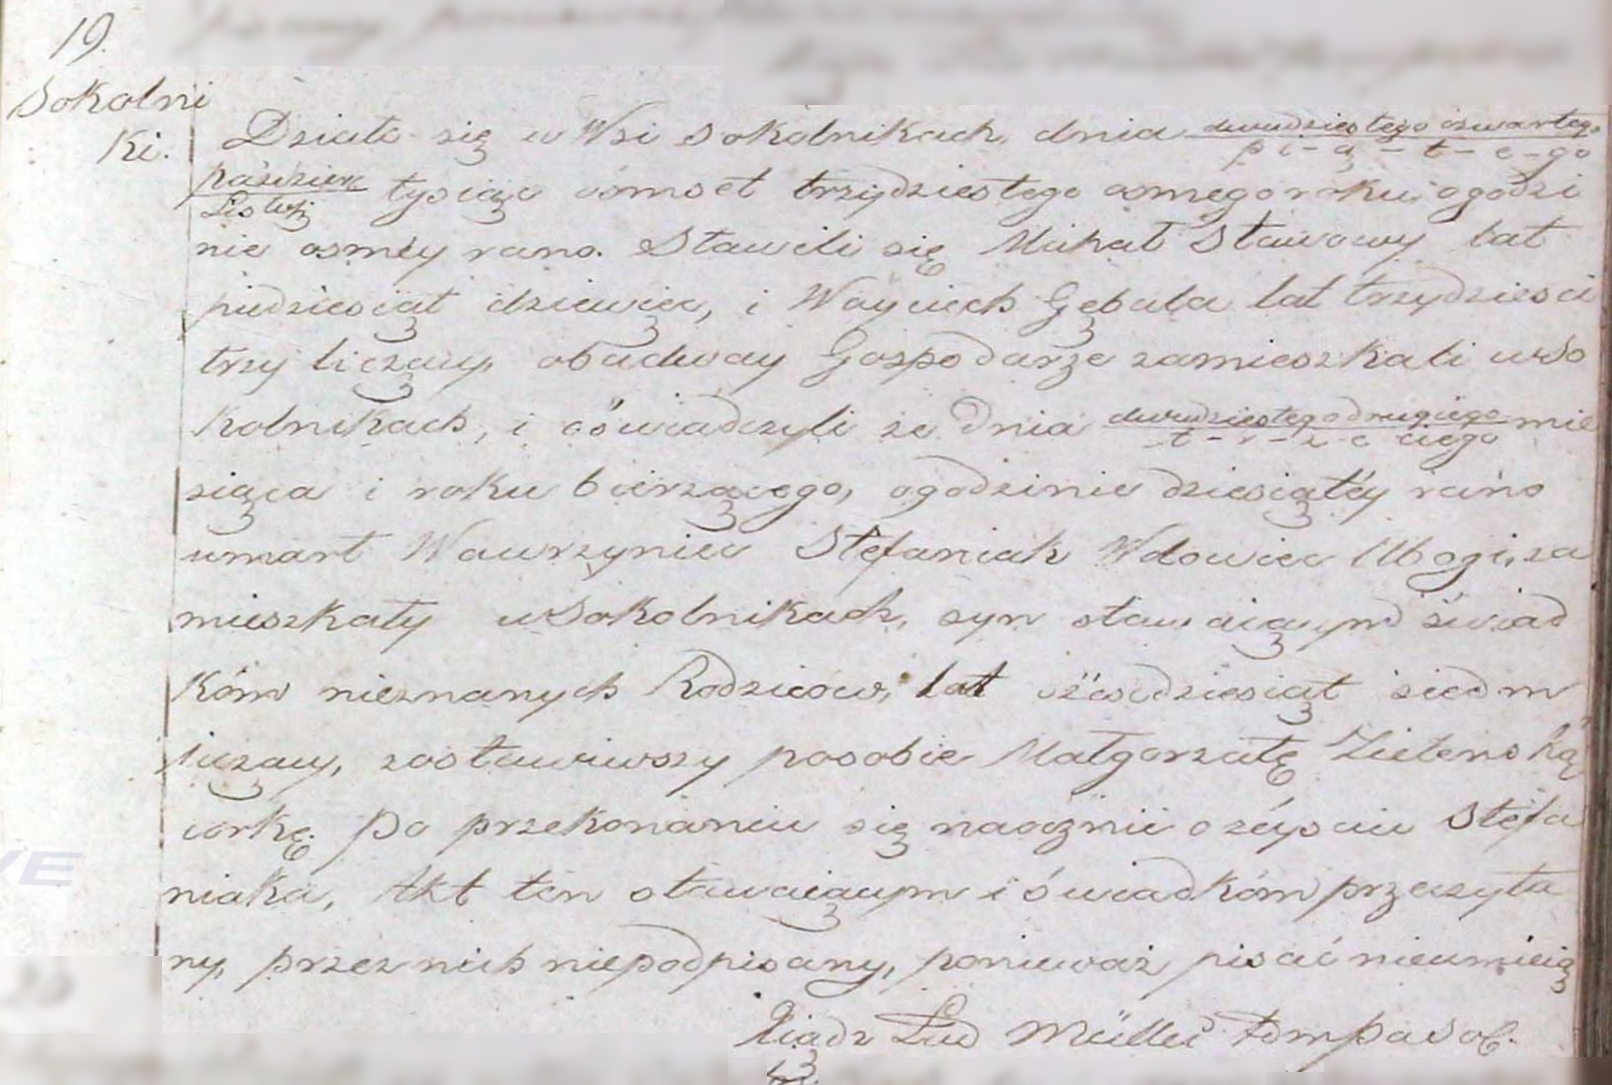 19.
Sokolni
ki.
Działo się w Wsi Sokolnikach dnia dwudziestego czwartego
p i - ą - t - e - go
paździer tysiąc ośmset trzydziestego osmego roku, o godzi
Listop
nie osmey rano. Stawili się Michał Stawowy lat
piędziesiąt dziewięć, i Woyciech Gębala lat trzydzieści
trzy liczący, obadway Gospodarze zamieszkali w So
kolnikach, i oświadczyli że dnia dwudziestego drugiego mie
t - r - z e ciego
siąca i roku bierzącego, o godzinie dziesiątéy rano
umarł Wawrzyniec Stefaniak Wdowiec Ubogi, za
mieszkały w Sokolnikach, syn stawaiącym świad
kóm nieznanych Rodziców, lat sześdziesiąt siedm
liczący, zostawiwszy po sobie Małgorzatę Zieleńską
corkę. Po przekonaniu się naocznie o zéyściu Stefa
niaka, Akt ten stawaiącym i świadkóm przeczyta
ny, przez nich niepodpisany, ponieważ pisać nieumieią
Xiądz Lud Müller Adm Pa Sok.